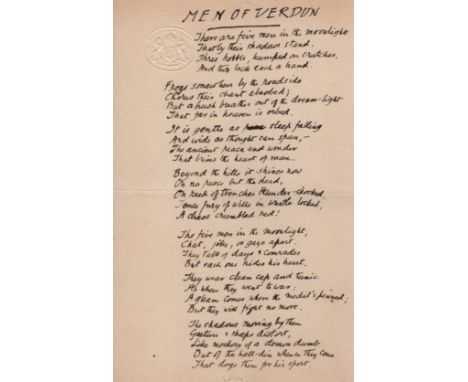 MEN OF VERDUN
There are five men in the moonlight
That by their shadows stand.
Three hobble, humped on crutches,
And two lack each a hand.
Frogs somewhere by the roadside
Chorus their chant absorbed;
But a hush breathes out of the dream-light
That far in heaven is orbed.
It is gentle as sleep falling
And wide as thought can span, –
The ancient peace and wonder
That brims the heart of man.
Beyond the hills it shines now
On no peace but the dead,
On reek of trenches thunder-shocked,
Tense fury of wills in wrestle locked,
A chaos crumbled red!
The five men in the moonlight,
Chat, joke, or gaze apart.
They talk of days & comrades
But each one hides his heart.
They wear clean cap and tunic
As when they went to war:
A gleam comes where the medal's pinned;
But they will fight no more.
The shadows moving by them
Gesture & shape distort,
Like mockery of a demon dumb
Out of the hell-din whence they come
That dogs them for his sport.